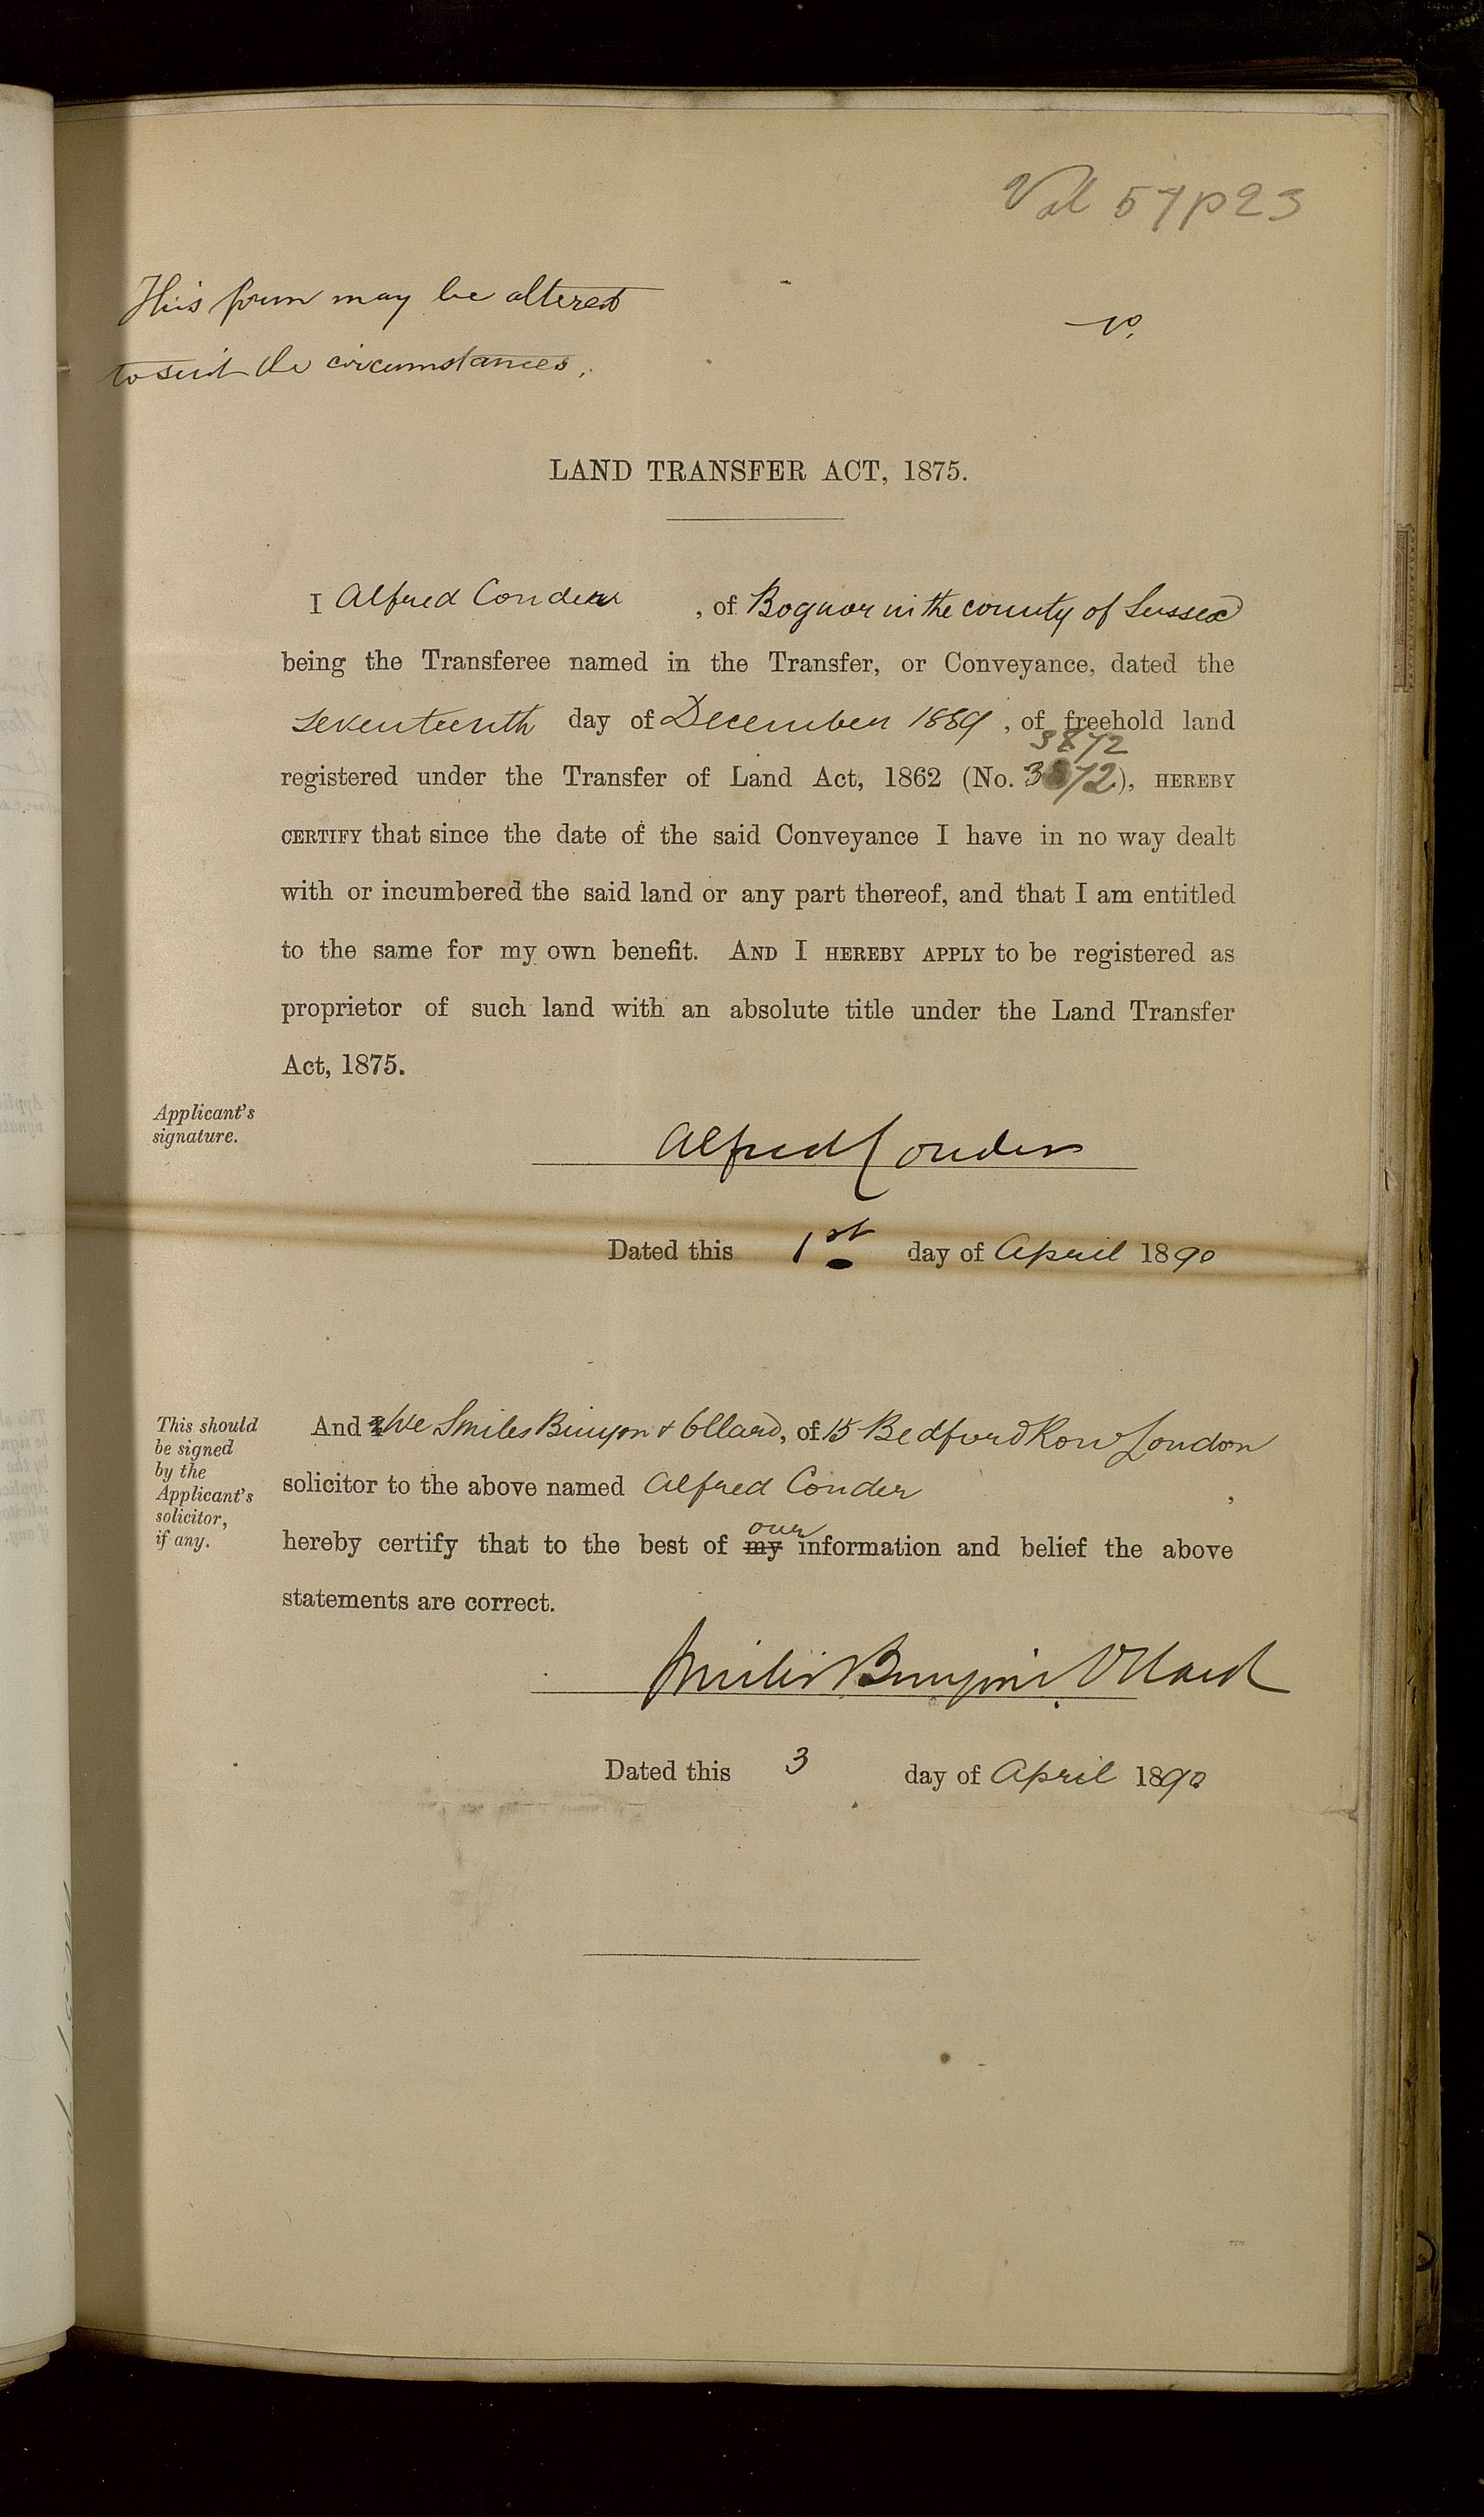 Vol 57 p 23
This form may be altered
to suit the circumstances.
LAND TRANSFER ACT, 1875.
I Alfred Conder, of Bognor in the county of Sussex
being the Transferee named in the Transfer, or Conveyance, dated the
seventeenth day of December 1889, of freehold land
3872
registered under the Transfer of Land Act, 1862 (No. 3872), HEREBY
CERTIFY that since the date of the said Conveyance I have in no way dealt
with or incumbered the said land or any part thereof, and that I am entitled
to the same for my own benefit. AND I HEREBY APPLY to be registered as
proprietor of such land with an absolute title under the Land Transfer
Act, 1875.
Applicant's
signature.
Alfred Conder
Dated this 1st day of April 1890
This should
be signed
by the
Applicant's
solicitor,
if any.
And We Smiles Binyon & Ollard, of 15 Bedford Row London
solicitor to the above named Alfred Conder,
our
hereby certify that to the best of my information and belief the above
statements are correct.
Smiles Binyon & Ollard
Dated this 3 day of April 1890